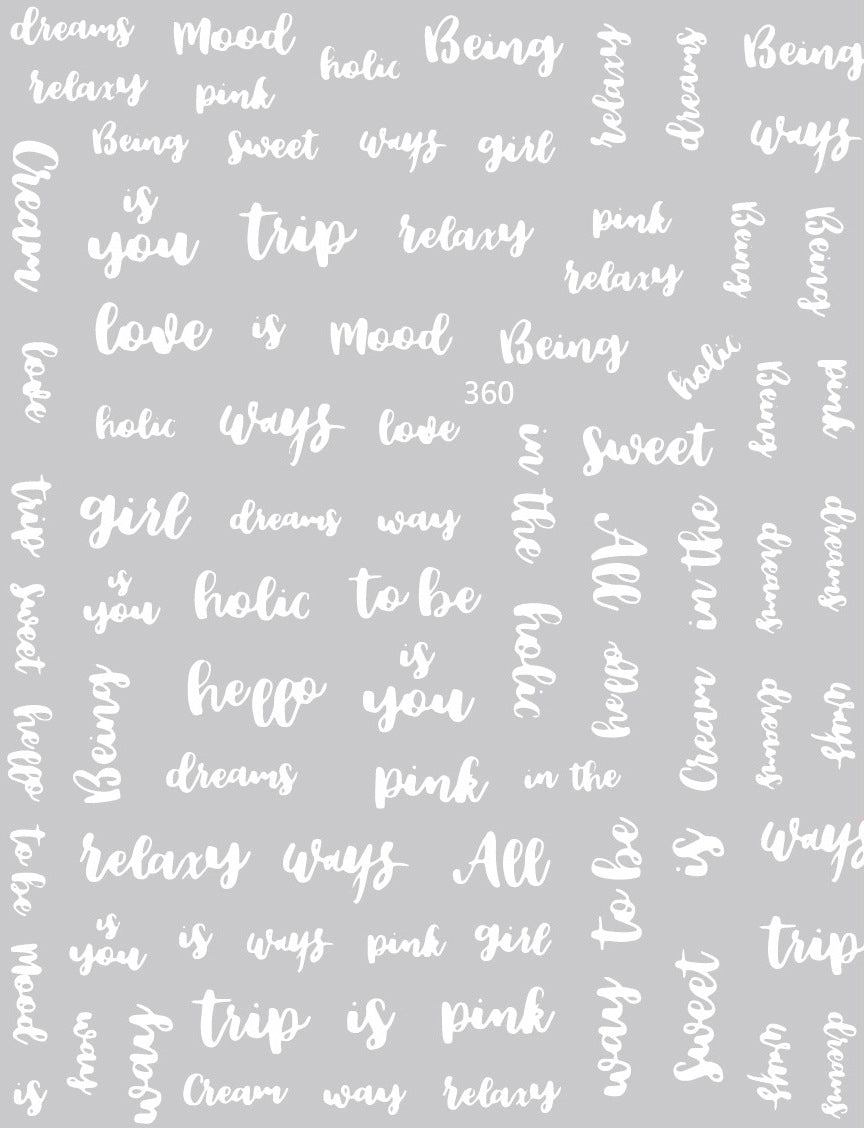 dreams Mood holic Being relaxy dreams Being
relaxy pink
Being sweet ways girl ways
Cream
is
you trip relaxy pink Being Being
relaxy
love is Mood Being holic
love 360 Being pink
holic ways love in the sweet
trip girl dreams way All in the dreams dreams
is
you holic to be
sweet holic hello
is
you
hello Being hello Cream dreams ways
dreams pink in the
to be relaxy ways All way to be is ways
is
you is ways pink girl trip
Mood sweet
way way trip is pink ways dreams
is Cream way relaxy